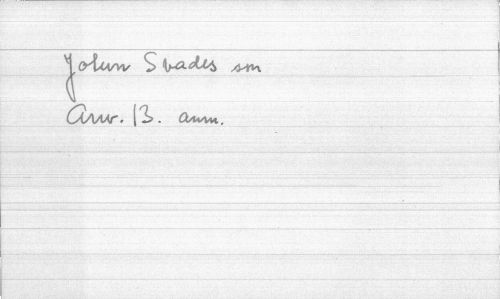 John Svades son
Anv. 13. anm.